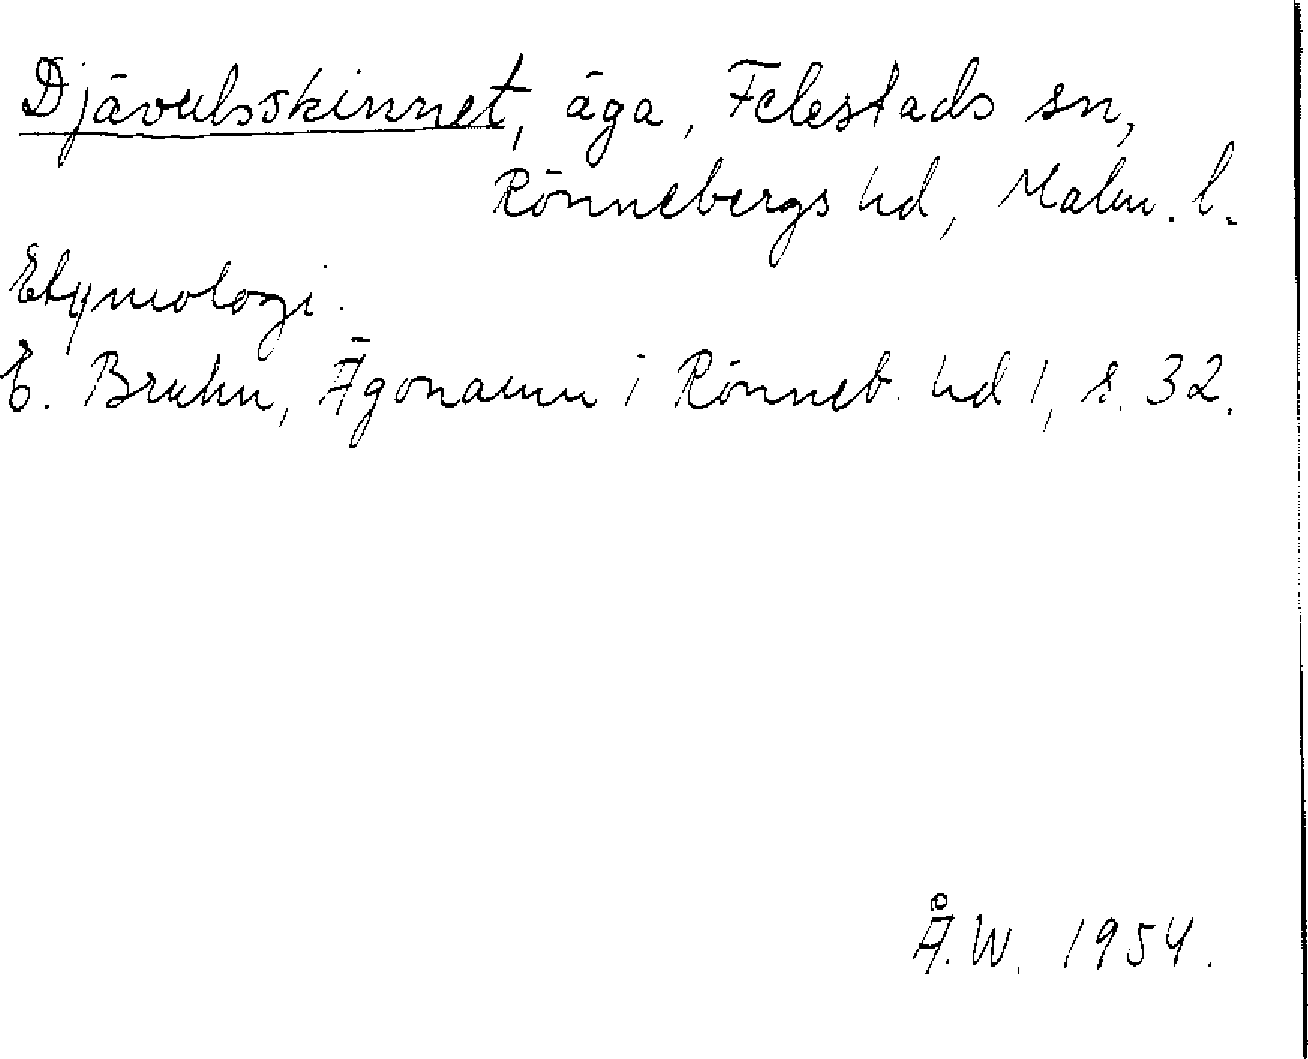 Djävulsskinnet, äga, Felestads sn,
Rönnebergs hd, Malm. l.
Etymologi.
E. Bruhn, Ägonamn i Rönneb. hd 1, s. 32.
Å.W. 1954.